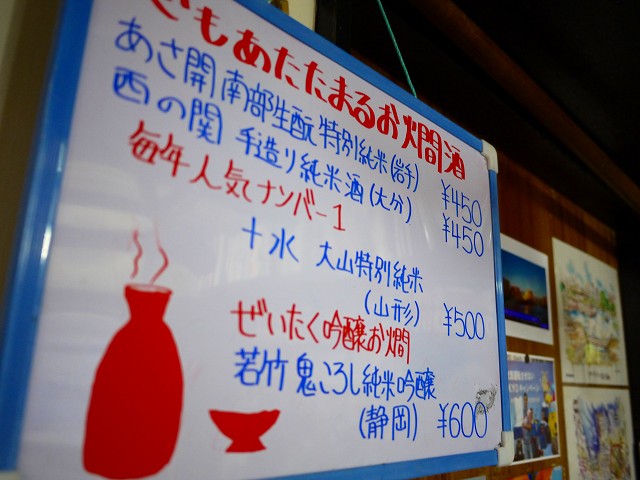 でもあたたまるお燗酒
あさ開 南部生酛 特別純米(岩手) ¥450
西の関 手造り純米酒(大分) ¥450
毎年人気ナンバー1
十水 大山特別純米
(山形) ¥500
ぜいたく吟醸お燗
若竹 鬼ころし純米吟醸
(静岡) ¥600